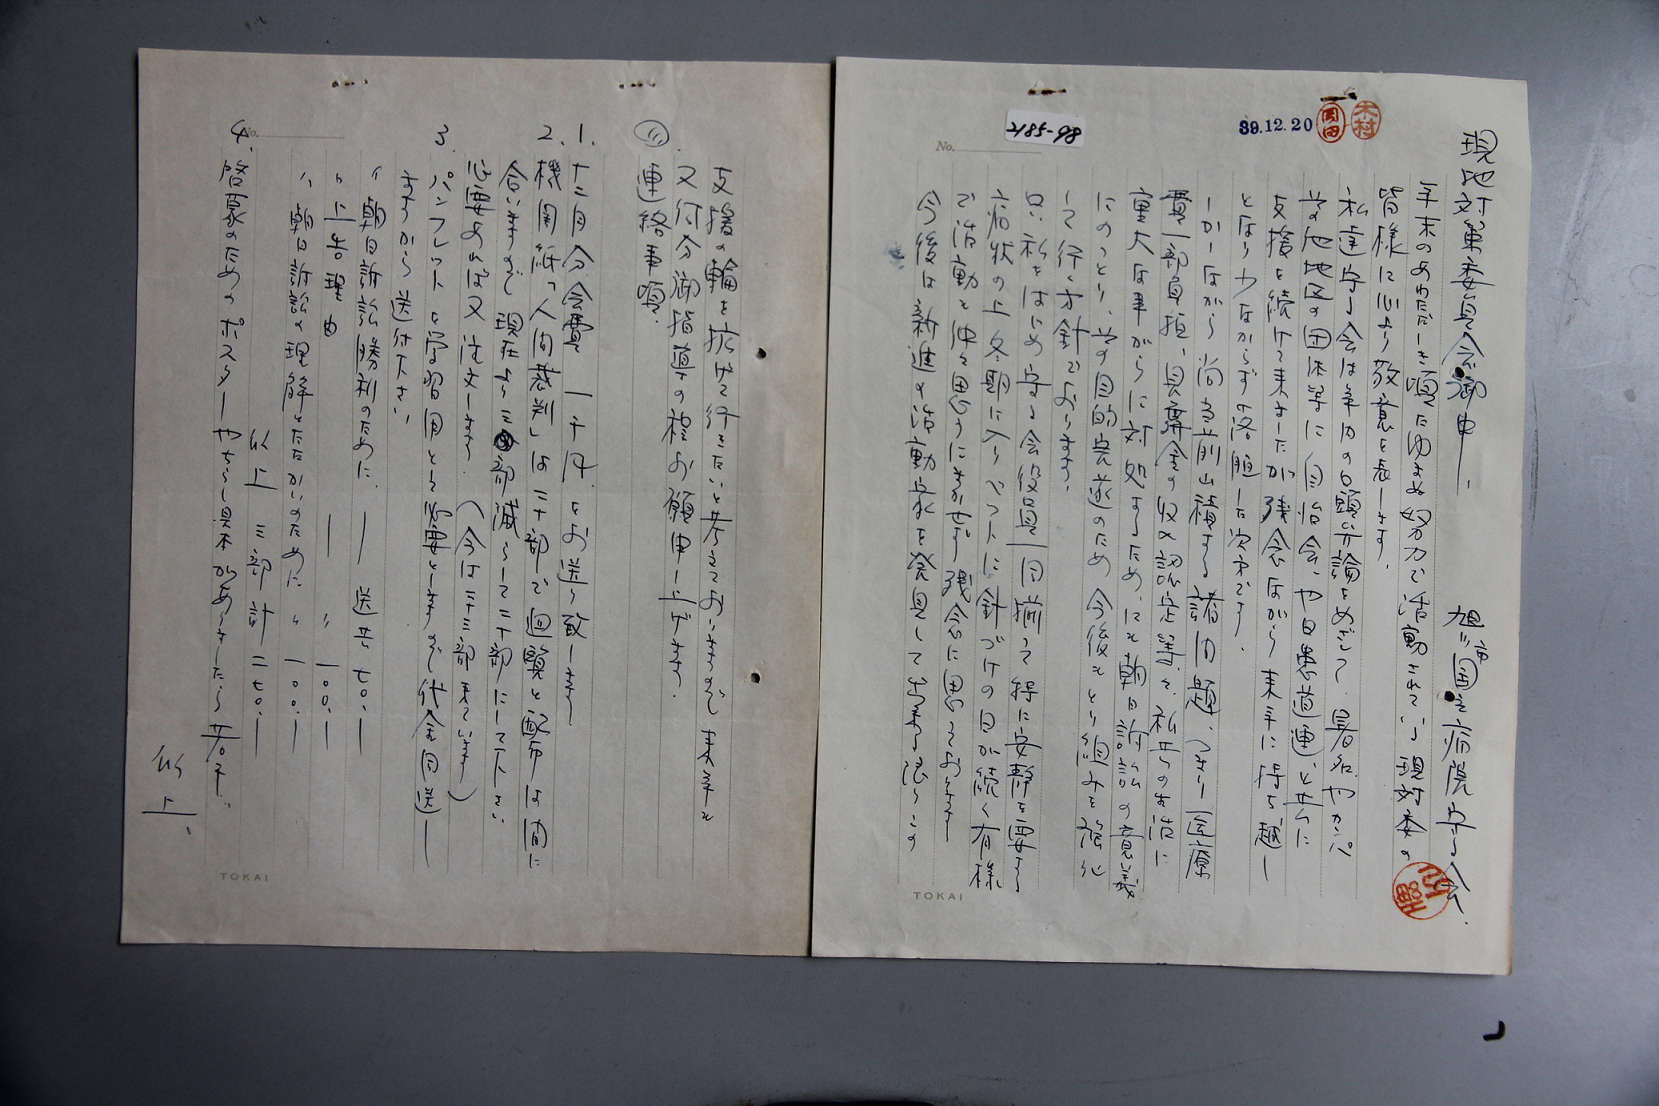 2185-98
39.12.20
岡田
木村
No.
現地対策委員会御中
旭川国立病院守る会
年末のあわただしき頃たゆまぬ努力で活動されている現対委の
皆様に心より敬意を表します
私達守る会は年内の口頭弁論をめざして、署名やカンパ
その他地区の団体等に自治会、や日患道連と共に
支援を続けて来ましたが残念ながら来年に持ち越し
となり少なからず落胆した次第です。
しかしながら尚当前山積する諸問題、つまり医療
費一部負担、見舞金の収入認定等々、私共の生活に
重大な事がらに対処するため、にも朝日訴訟の意義
にのっとり、その目的完遂のため今後もとり組みを強化
して行く方針でおります。
只、私をはじめ守る会役員一同揃って特に安静を要する
病状の上冬期に入りベットに釘づけの日が続く有様
で活動も仲々思うにまかせず残念に思っております
今後は新進の活動家を発見して
TOKAI
支援の輪を拡げて行きたいと考えておりますので来年も
又何分御指導の程お願申し上げます。
連絡事項.
1. 十二月分会費 一千円をお送り致します
2. 機関紙「人間裁判」は二十部で回覧と配布は間に
合いますので現在より三部減らして二十部にして下さい
必要あれば又注文します. (今は二十三部来ています)
3. パンフレットを学習用として必要としますので代金同送し
ますから送付下さい
〃 朝日訴訟勝利のために. ― 送共 七〇.―
〃 上告理由 ― 〃 一〇〇.―
〃 朝日訴訟の理解とたたかいのために 〃 一〇〇.―
以上 三部 計 二七〇.―
No.
4. 啓蒙のためのポスター
以上
TOKAI